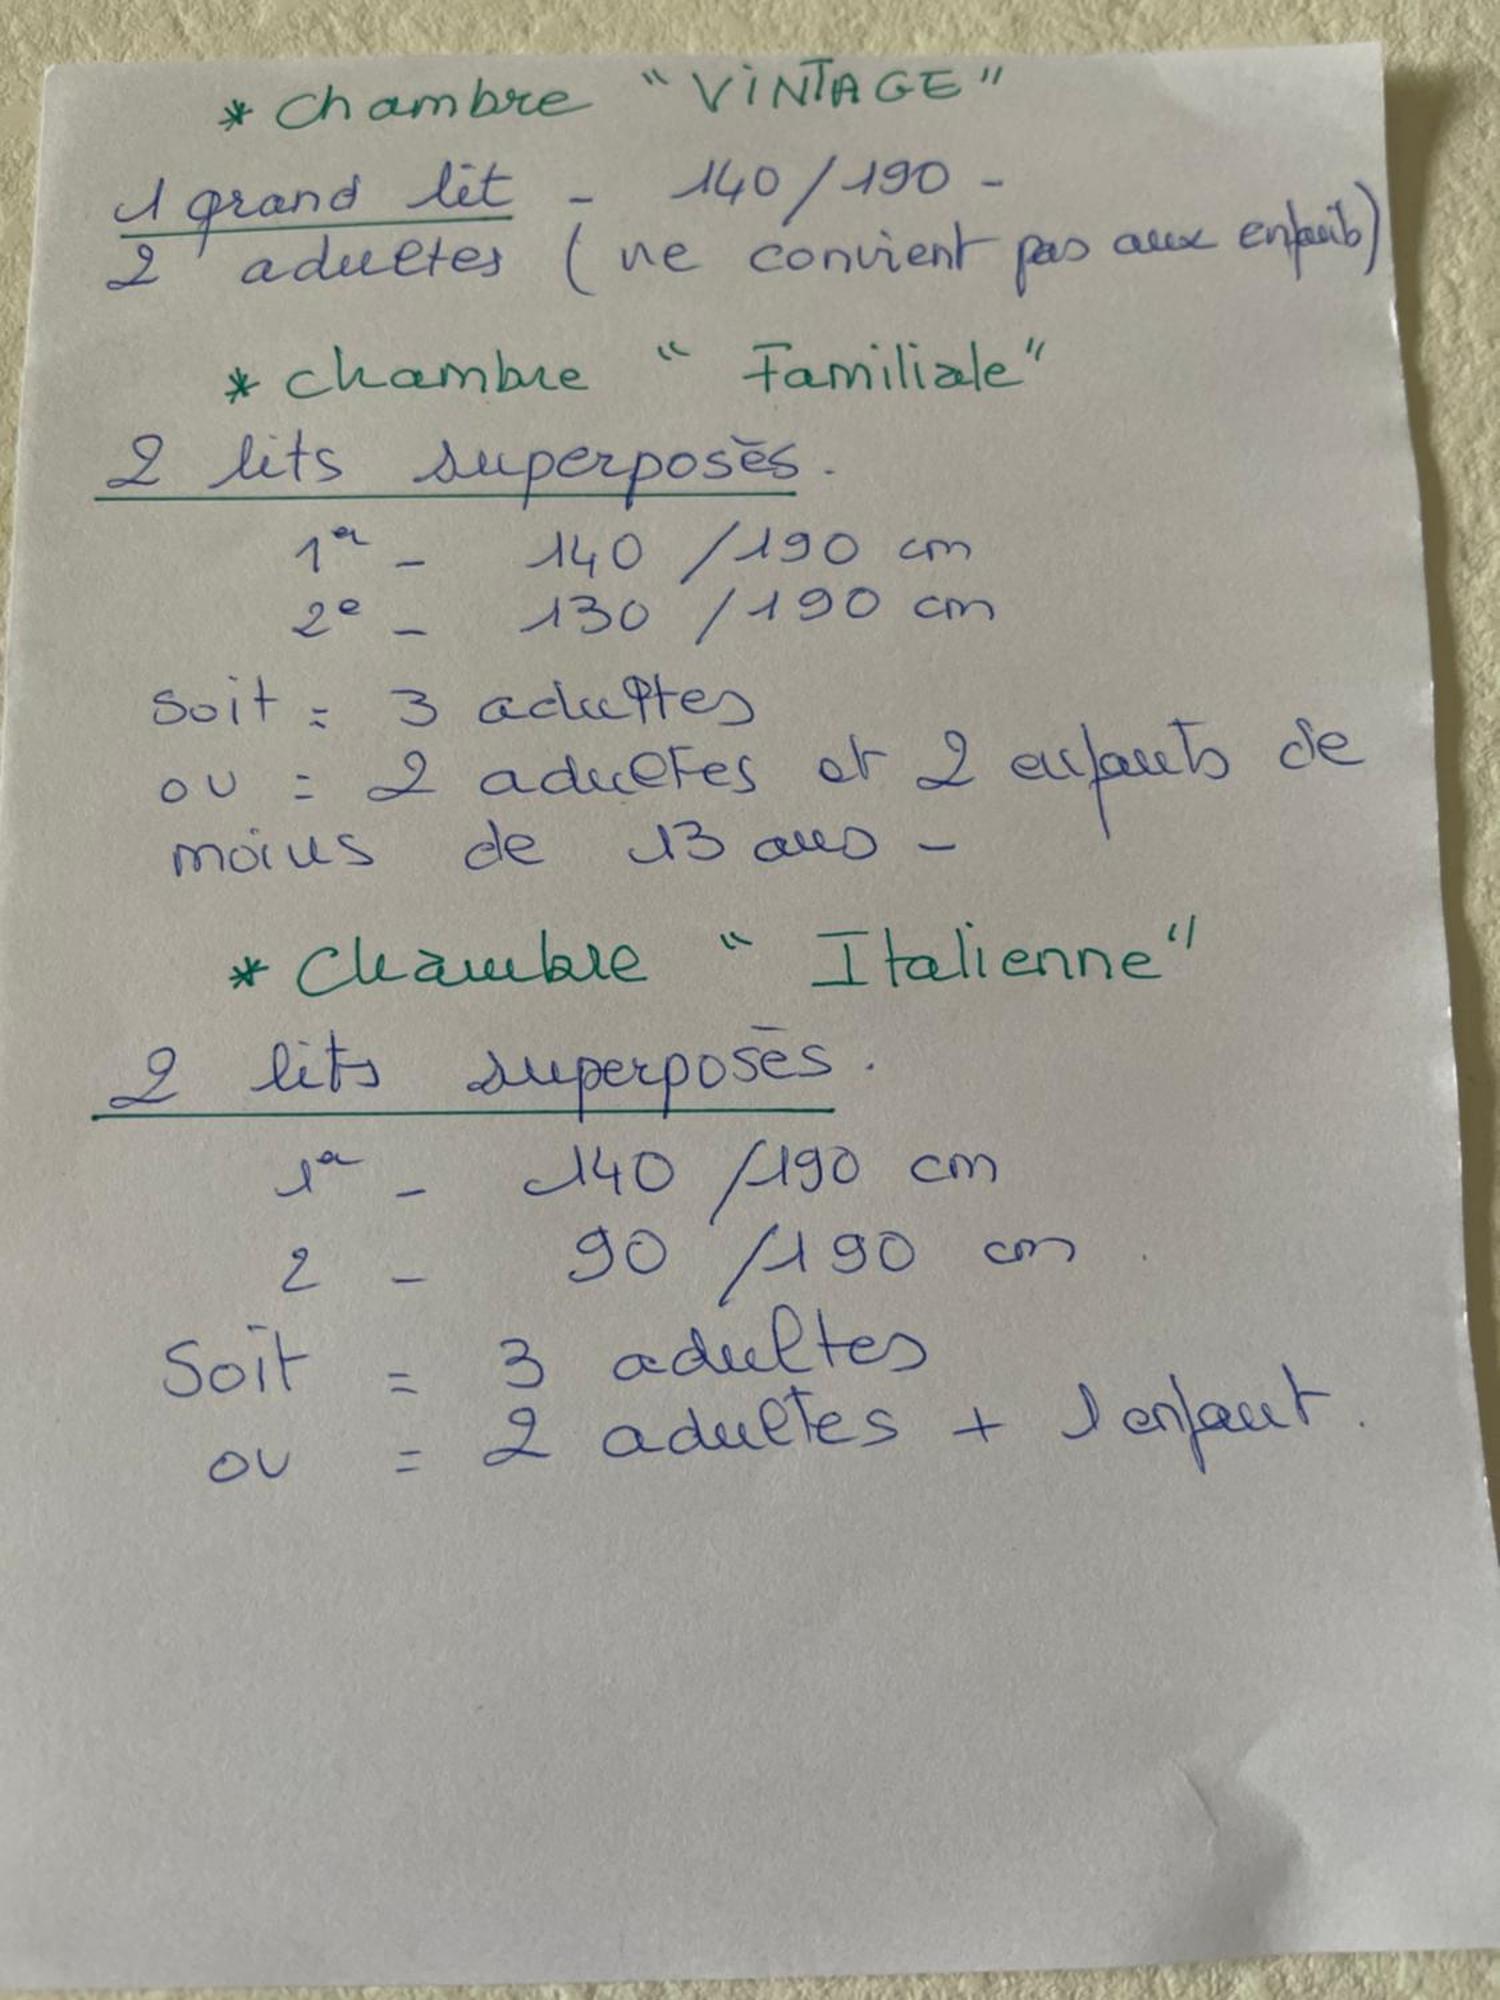 * Chambre "VINTAGE"
1 grand lit - 140/190 -
2 adultes (ne convient pas aux enfants)
* Chambre "Familiale"
2 lits superposés.
1er - 140 /190 cm
2e - 130 /190 cm
soit = 3 adultes
ou = 2 adultes et 2 enfants de
moins de 13 ans -
* Chambre "Italienne"
2 lits superposés.
1er - 140 /190 cm
2 - 90 /190 cm.
Soit = 3 adultes
ou = 2 adultes + 1 enfant.